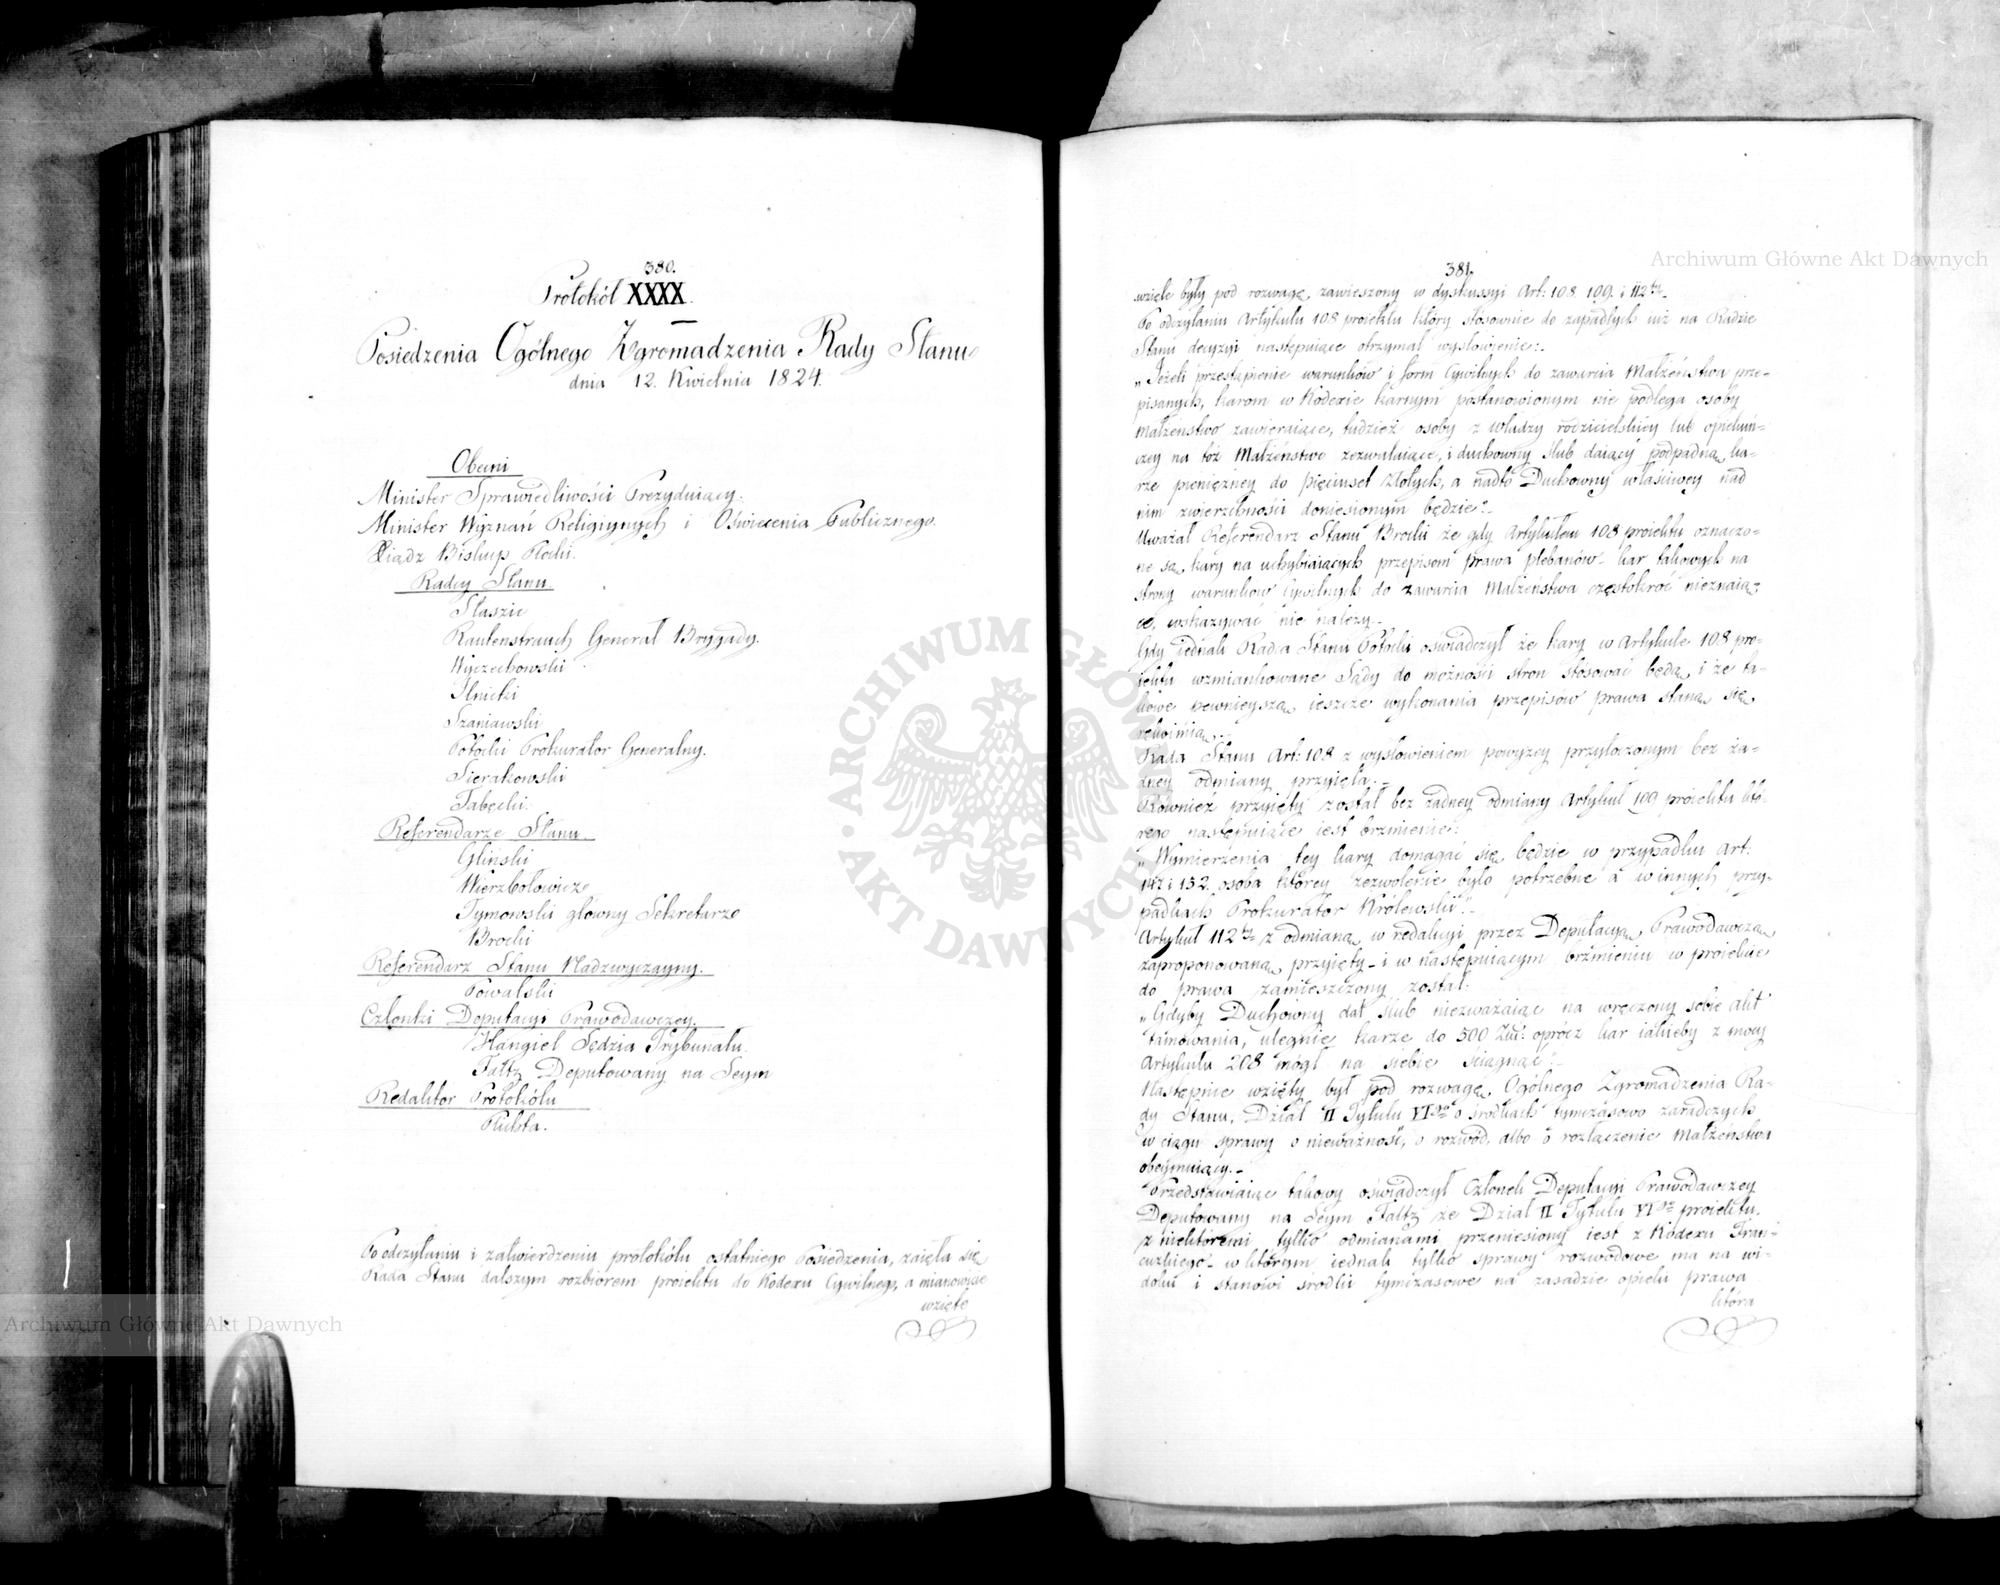 380.
Protokół XXXX.
Posiedzenia Ogólnego Zgromadzenia Rady Stanu
dnia 12. Kwietnia 1824.
Obecni
Minister Sprawiedliwości Prezyduiący.
Minister Wyznań Religiynych i Oświecenia Publicznego.
Xiądz Biskup Płocki.
Radcy Stanu.
Staszic
Rautenstrauch Generał Brygady.
Wyczechowski
Ilnicki
Szaniawski
Potocki Prokurator Generalny.
Sierakowski
Tabęcki.
Referendarze Stanu
Gliński
Wierzbołowicz
Tymowski główny Sekretarz
Brocki
Referendarz Stanu Nadzwyczayny.
Kowalski
Członki Deputacyi Prawodawczey.
Hangiel Sędzia Trybunału.
Faltz Deputowany na Seym
Redaktor Protokółu
Plichta.
Po odczytaniu i zatwierdzeniu protokółu ostatniego Posiedzenia, zaięła się
Rada Stanu dalszym rozbiorem proiektu do Kodexu Cywilnego, a mianowicie
wzięte
381.
wzięte były pod rozwagę, zawieszony w dyskussyi Art: 108. 109. i 112ty.
Po odczytaniu Artykułu 108 proiektu który stósownie do zapadłych iuż na Radzie
Stanu decyzyi następuiące otrzymał wysłowienie:
„Jeżeli przestąpienie warunków i form Cywilnych do zawarcia Małżeństwa prze-
pisanych, karom w Kodexie karnym postanowionym nie podlega osoby
Małżeństwo zawieraiące, tudzież osoby z władzy rodzicielskiey lub opiekuń-
czey na toż Małżeństwo zezwalaiące, i duchowny ślub daiący podpadną ka-
rze pieniężney do pięciuset Złotych, a nadto Duchowny właściwey nad
nim zwierzchności doniesionym będzie".
Uważał Referendarz Stanu Brocki że gdy Artykułem 108 proiektu oznaczo-
ne są kary na uchybiaiących przepisom prawa plebanów kar takowych na
strony warunków Cywilnych do zawarcia Małżeństwa częstokroć nieznaią-
ce, wskazywać nie należy.
Gdy iednak Radca Stanu Potocki oświadczył że kary w Artykule 108 pro-
iektu wzmiankowane Sądy do możności stron stosować będą, i że ta-
kowe pewnieyszą ieszcze wykonania przepisów prawa staną się
rękoimią,
Rada Stanu Art: 108 z wysłowieniem powyżey przytoczonym bez ża-
dney odmiany przyięła.
Również przyięty został bez żadney odmiany Artykuł 109 proiektu któ-
rego następuiące iest brzmienie:
„Wymierzenia tey kary domagać się będzie w przypadku Art:
147 i 152. osoba którey zezwolenie było potrzebne a w innych przy-
padkach Prokurator Królewski".
Artykuł 112ty z odmianą w redakcyi przez Deputacyą Prawodawczą
zaproponowaną przyięty i w następuiącym brzmieniu w proiekcie
do prawa zamieszczony został:
„Gdyby Duchowny dał ślub niezważaiąc na wręczony sobie akt
tamowania, ulegnie karze do 500 Złł: oprócz kar iakieby z mocy
Artykułu 208 mógł na siebie ściągnąć".
Następnie wzięty był pod rozwagę Ogólnego Zgromadzenia Ra-
dy Stanu, Dział II Tytułu VIgo o środkach tymczasowo zaradczych
w ciągu sprawy o nieważność, o rozwód, albo o rozłączenie Małżeństwa
obeymuiący.
Przedstawiaiąc takowy oświadczył Członek Deputacyi Prawodawczey
Deputowany na Seym Faltz że Dział II Tytułu VIgo proiektu
z niektóremi tylko odmianami przeniesiony iest z Kodexu Fran-
cuzkiego w którym iednak tylko sprawy rozwodowe ma na wi-
doku i stanowi środki tymczasowe na zasadzie opieki prawa
która
Archiwum Główne Akt Dawnych
Archiwum Główne Akt Dawnych
ARCHIWUM GŁÓWNE AKT DAWNYCH